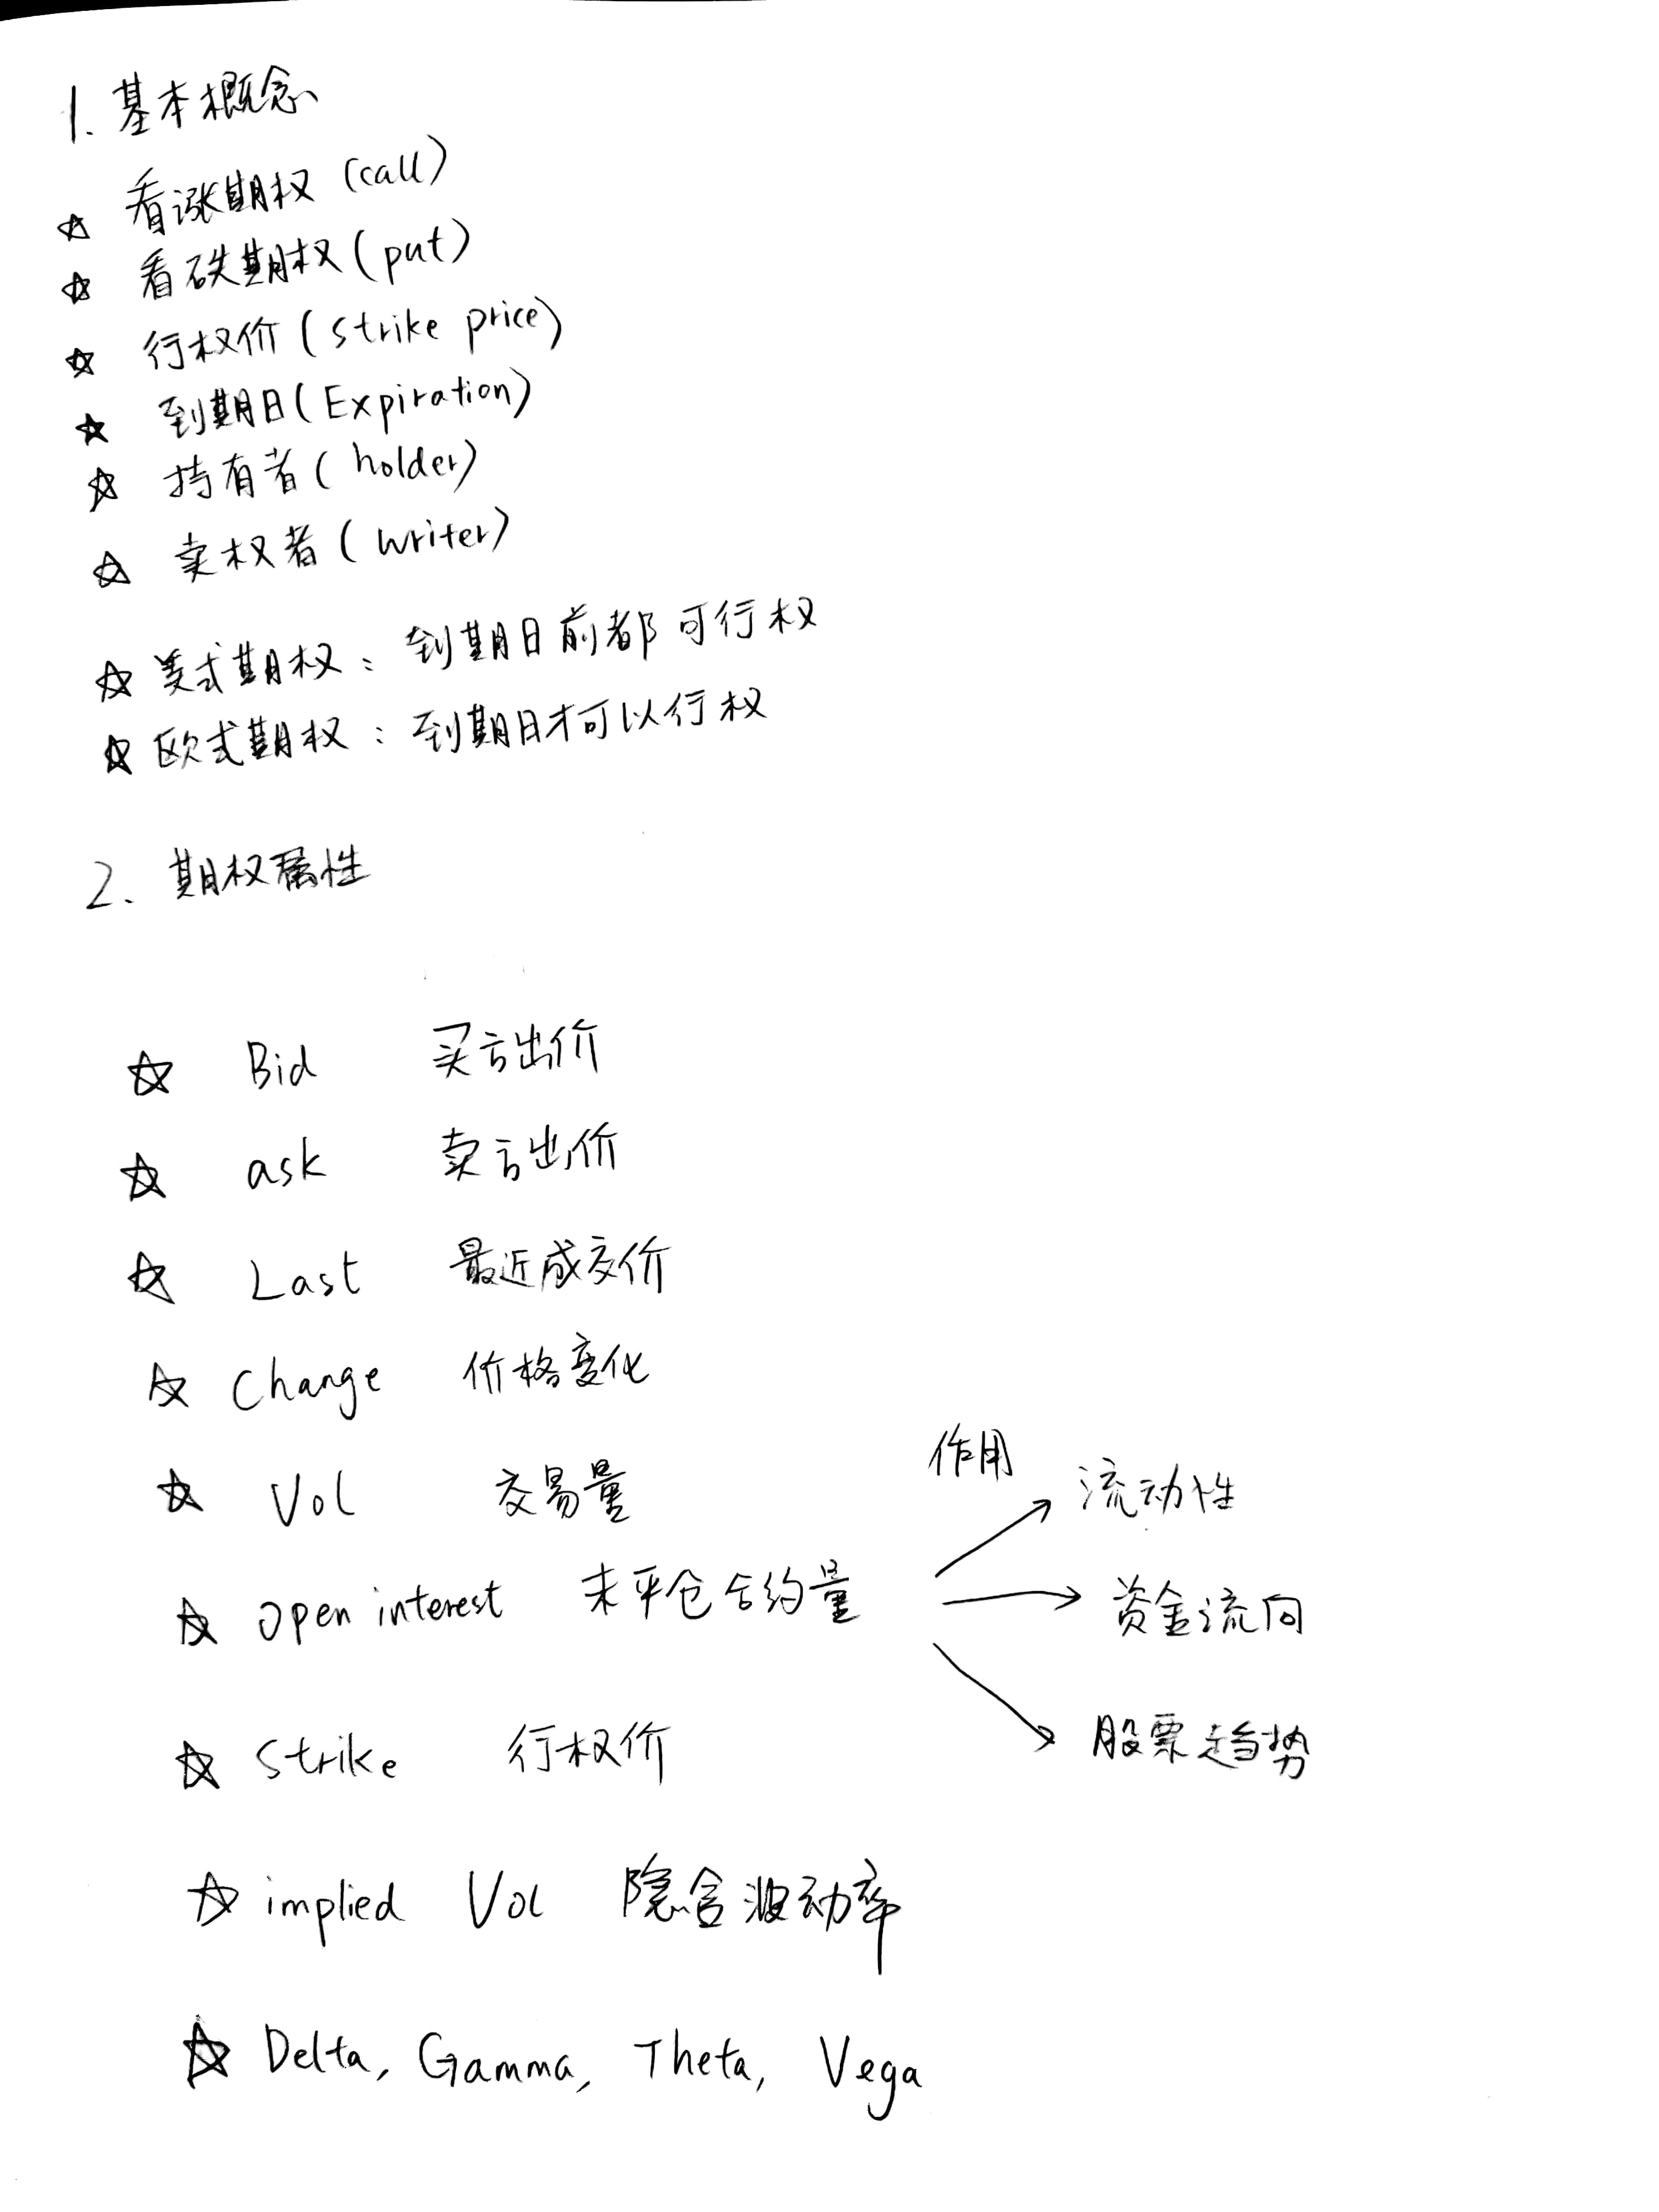 1. 基本概念
☆ 看涨期权 (call)
☆ 看跌期权 (put)
☆ 行权价 (strike price)
☆ 到期日 (Expiration)
☆ 持有者 (holder)
☆ 卖权者 (writer)
☆ 美式期权：到期日前都可行权
☆ 欧式期权：到期日才可以行权
2. 期权属性
☆ Bid 买方出价
☆ ask 卖方出价
☆ Last 最近成交价
☆ Change 价格变化
☆ Vol 交易量
☆ open interest 未平仓合约量
作用
流动性
资金流向
股票趋势
☆ Strike 行权价
☆ implied Vol 隐含波动率
☆ Delta, Gamma, Theta, Vega